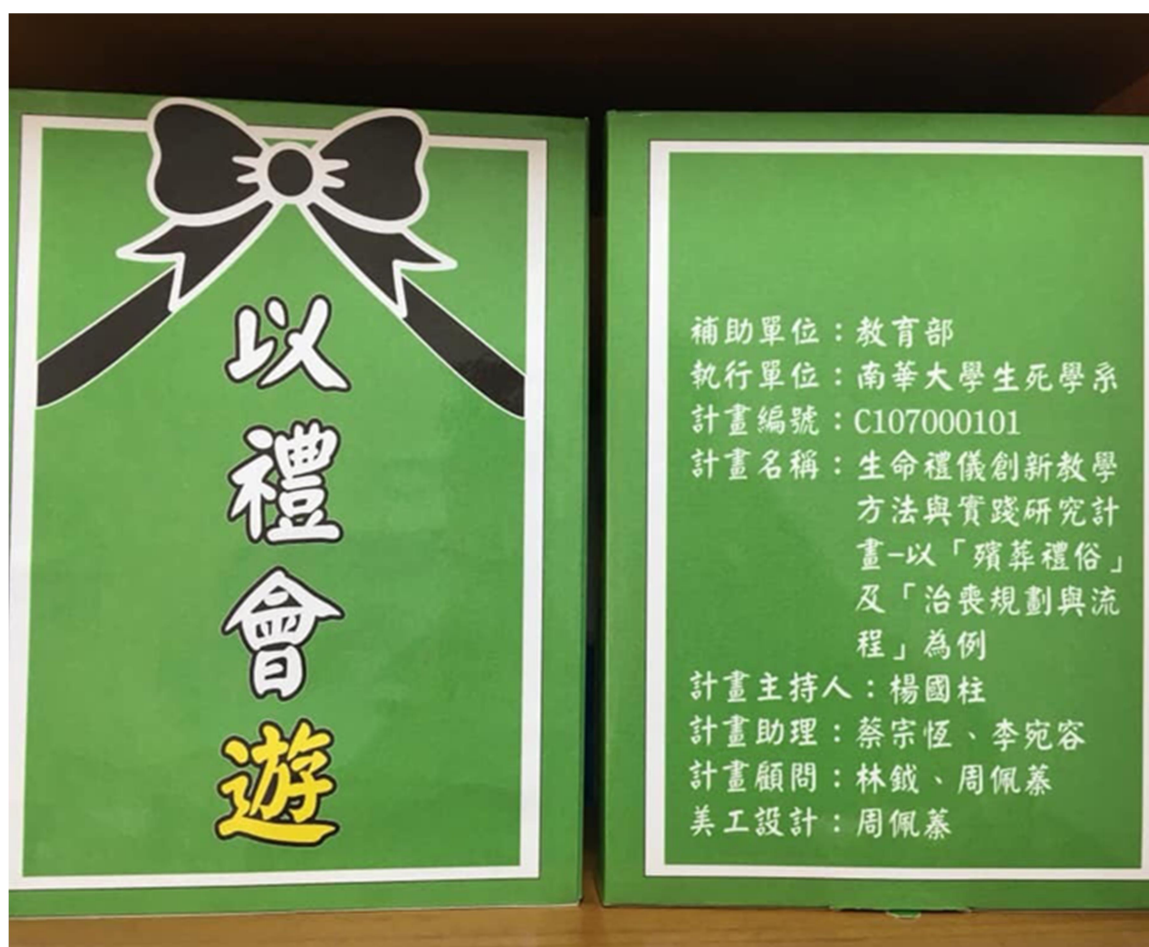 以禮會遊
補助單位：教育部
執行單位：南華大學生死學系
計畫編號：C107000101
計畫名稱：生命禮儀創新教學
方法與實踐研究計
畫-以「殯葬禮俗」
及「治喪規劃與流
程」為例
計畫主持人：楊國柱
計畫助理：蔡宗恆、李宛容
計畫顧問：林鉞、周佩蓁
美工設計：周佩蓁